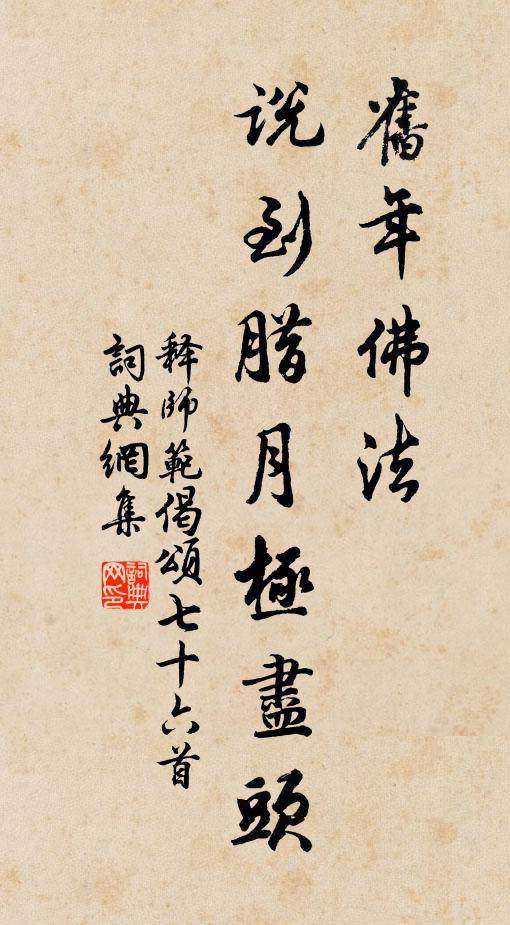 舊年佛法
說到腊月極盡頭
释師範偈頌七十六首
詞典網集
詞典網印